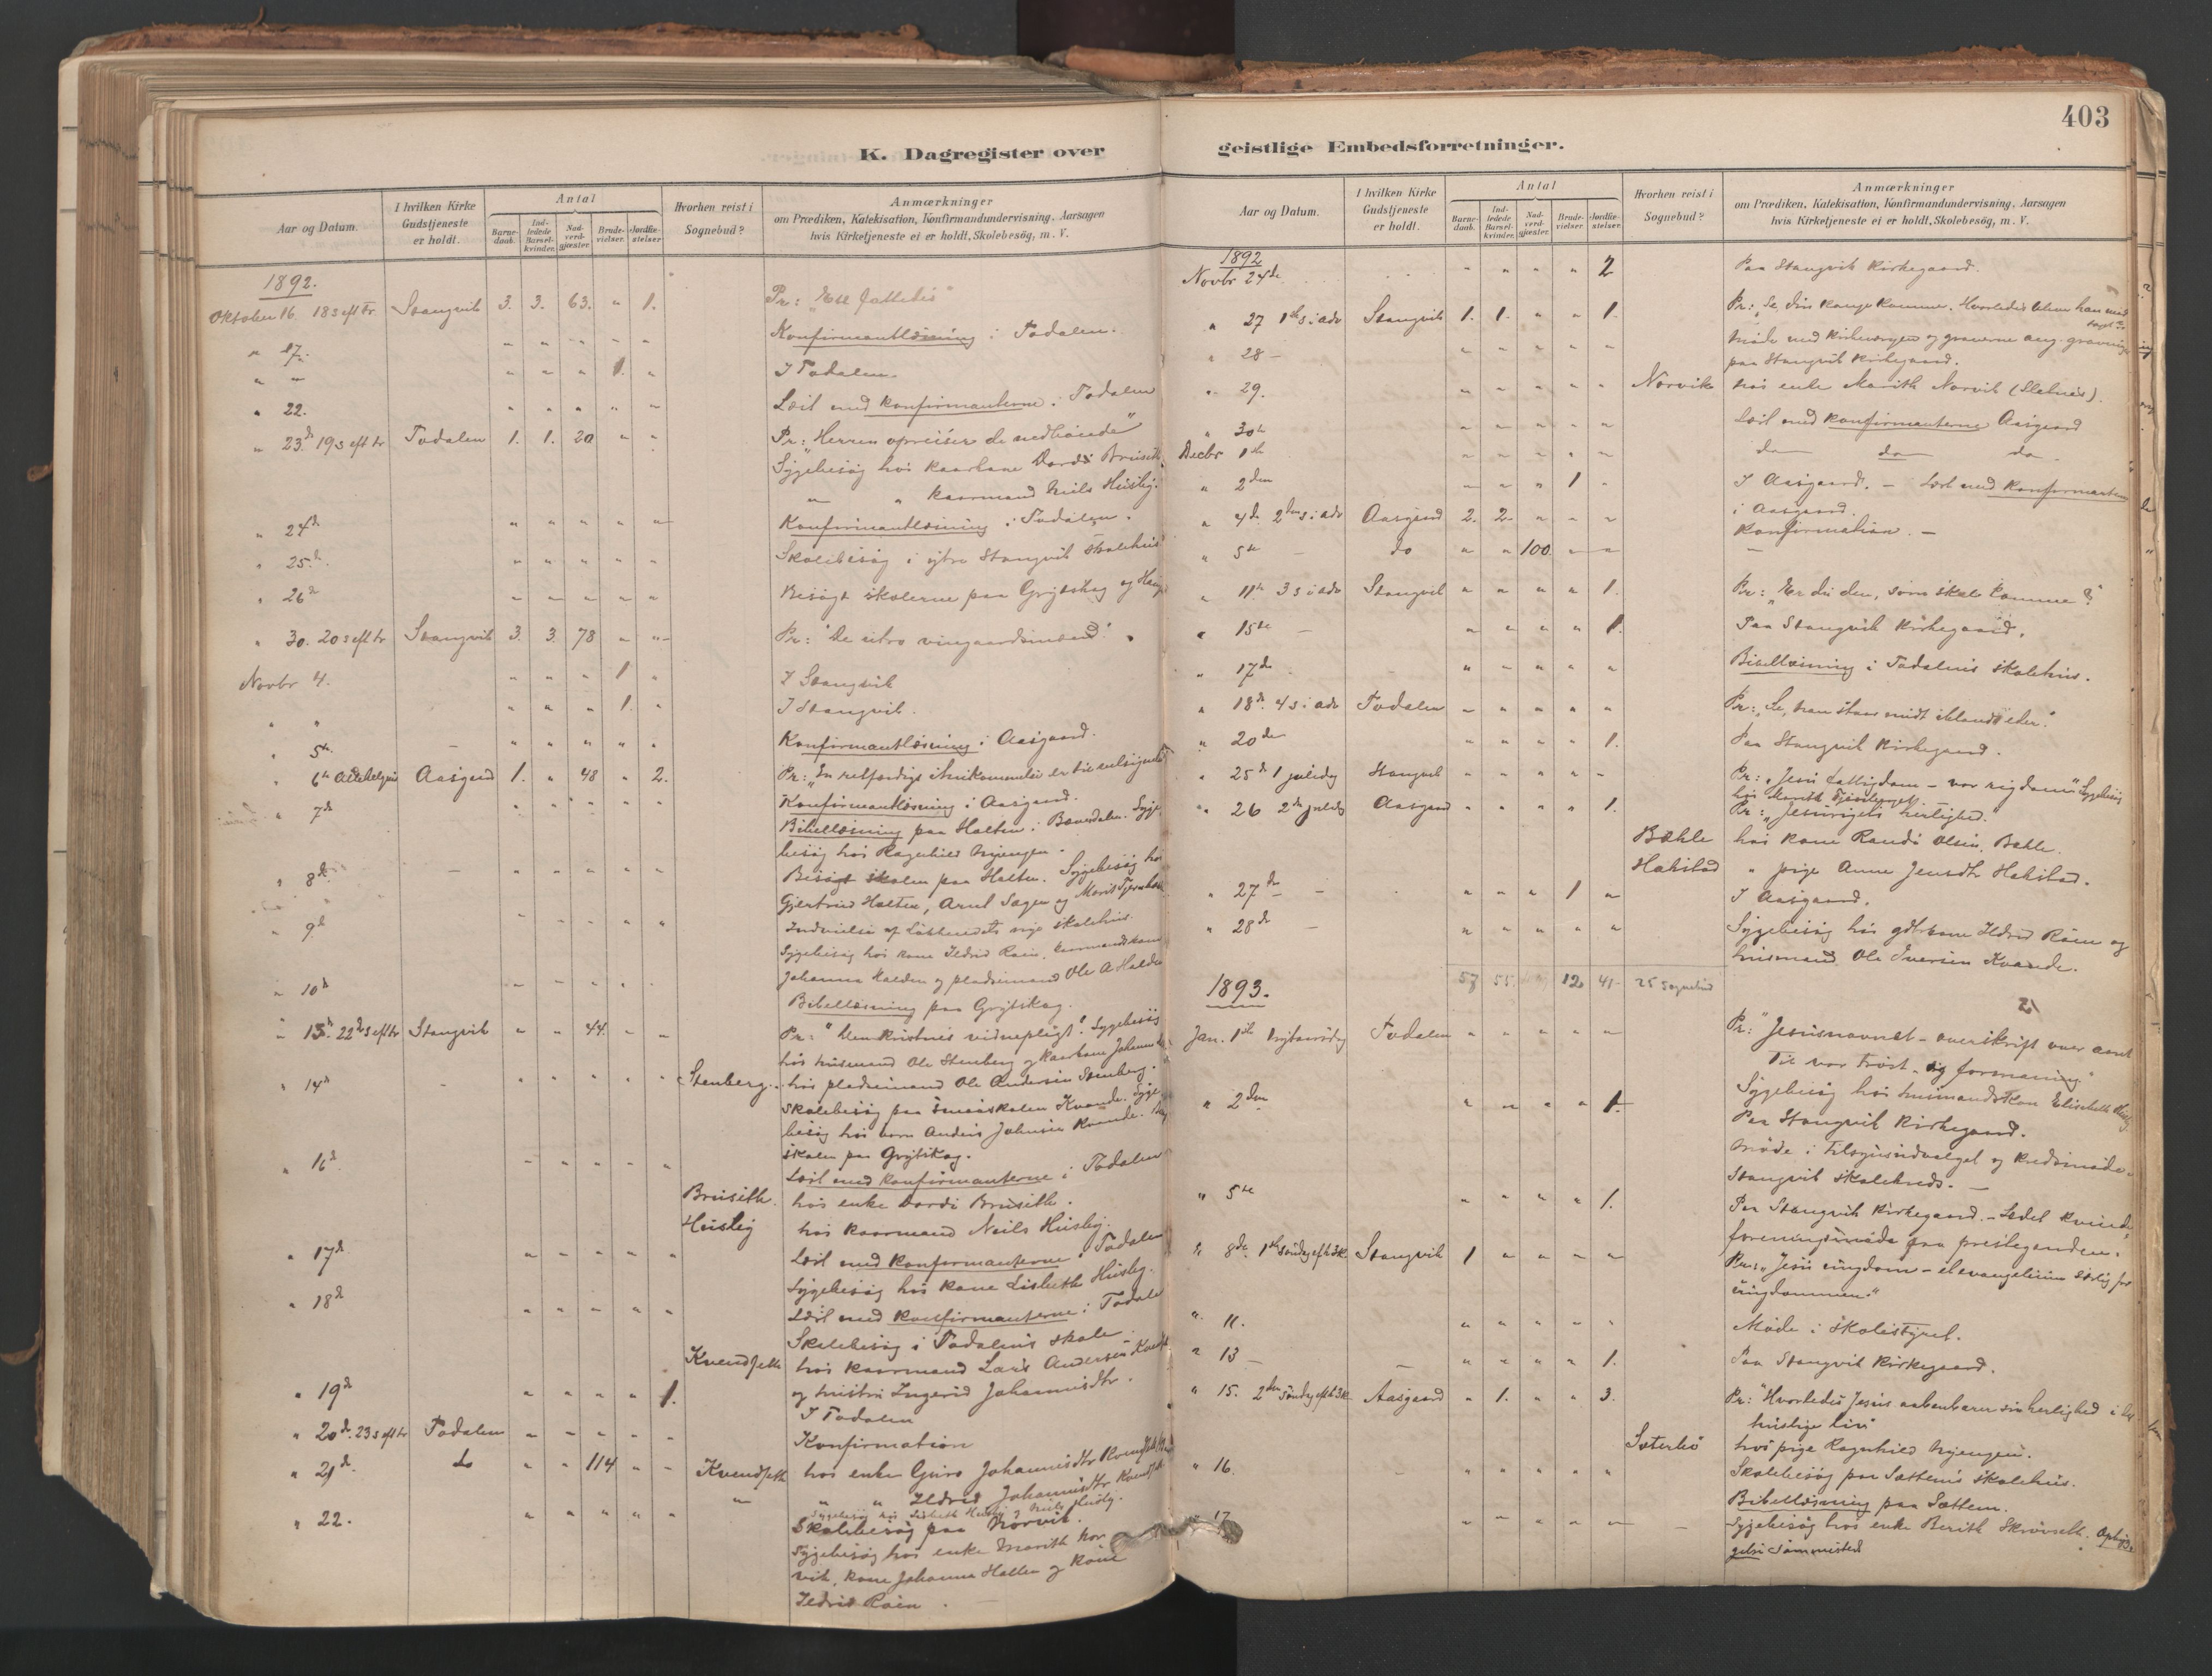 403
K. Dagregister over geistlige Embedsforretninger.
Aar og Datum.
I hvilken Kirke Gudstjeneste er holdt.
Antal
Barne-daab.
Ind-ledede Barsel-kvinder.
Nad-verd-gjæster.
Brude-vielser.
Jordfæ-stelser
Hvorhen reist i Sognebud?
Anmærkninger
om Prædiken, Katekisation, Konfirmandundervisning, Aarsagen
hvis Kirketjeneste ei er holdt, Skolebesög, m. V.
1892.
Oktober 16. 18 s eft tr Stangvik 3. 3. 63. " 1. Pr:
" 17. Konfirmantlæsning i Todalen.
" " 1. I Todalen
" 22. Læst med konfirmanterne i Todalen
" 23de 19 s eft tr Todalen 1. 1. 20 " " Pr: "Herren opreiser de nedbøiede"
Sygebesøg hos
" " kaarmand Niels Husby.
" 24de Konfirmantlæsning i Todalen.
" 25de Skolebesøg i ytre Stangvik skolehus
" 26de Besøgt skolerne paa Grøtskag og
" 30. 20 s eft tr Stangvik 3. 3. 78 " " Pr: "De utro vingaardsmænd".
Novbr 4. 1 I Stangvik
" " 1. I Stangvik.
" 5te Konfirmantlæsning i Aasgaard.
" 6te Aasgaard 1. " 48 " 2. Pr:
" 7de Konfirmantlæsning i Aasgaard.
Bibellæsning paa Halten i Bæverdalen. Syge
besøg hos Ragnhild
" 8de Besøgt skolen paa Halten. Sygebesøg hos
" 9de Indvielse af nye skolehus.
Sygebesøg hos kone Ildrid
Johanna Halden og pladsemand Ole A Halden
" 10de Bibellæsning paa Grøtskag.
" 13de 22de s eft tr Stangvik " " 44. " " Pr: "Den kristnes vidnepligt". Sygebesøg
hos husmand Ole Stenberg og
" 14de Stenberg. hos pladsemand Ole Andersen Stenberg.
Skolebesøg paa smaaskolen Kvande. Syge
besøg hos barn Anders Johnsen Kvande.
skolen paa Grøtskag.
" 16de Læst med konfirmanterne i Todalen
Brüseth. hos enke Dordi Brüseth.
Husby hos kaarmand Neils Husby.
" 17de Læst med konfirmanterne i Todalen
Sygebesøg hos kone Lisbeth Husby.
" 18de Læst med konfirmanterne i Todalen
Skolebesøg i Todalens skole
Kvendseth hos kaarmand Lars Andersen
og hustru Ingerid Johannesdtr.
" 19de 1. I Todalen
" 20de. 23 s eft tr Todalen Konfirmation
" 21de. do " " 114 " " Kvendseth hos enke Guro Johannesdtr
" " " Ildrid Johannesdtr
Sygebesøg hos Lisbeth Husby og Niels Husby.
" 22. Skolebesøg paa Norvik.
Sygebesøg hos enke Marith Nor
vik, kone Johanna Halten og kone
Ildrid
Aar og Datum.
I hvilken Kirke Gudstjeneste er holdt.
Antal
Barne-daab.
Ind-ledede Barsel-kvinder.
Nad-verd-gjæster.
Brude-vielser.
Jordfæ-stelser
Hvorhen reist i Sognebud?
Anmærkninger
om Prædiken, Katekisation, Konfirmandundervisning, Aarsagen
hvis Kirketjeneste ei er holdt, Skolebesög, m. V.
1892
Novbr 24de 2 Paa Stangvik Kirkegaard.
" 27 1ste s i adv Stangvik 1. 1. " " 1. Pr: "Se din konge kommer.
" 28 Møde med kirkevergen og graverne ang. gravning
paa Stangvik Kirkegaard.
" 29. Norvik hos enke Marith Norvik
" 30te Læst med konfirmanterne Aasgaard
Decbr 1ste do do do
" 2den 1 I Aasgaard. – Læst med konfirmanterne
i Aasgaard.
" 4de 2den s i adv Aasgaard 2. 2. " " " Konfirmation. –
" 5te do " " 100. " "
" 11te 3 s i adv Stangvik " " " " 1. Pr: "Er du den, som skal komme?"
" 15te 1. Paa Stangvik Kirkegaard.
" 17de Bibellæsning i Todalens skolehus.
" 18de. 4 s i adv Todalen Pr: "Se, han staar midt iblandt eder."
" 20de 1. Paa Stangvik Kirkegaard.
" 25de 1 juledag Stangvik Pr: "Jesu fattigdom – vor rigdom" Sygebesøg
hos Marith
" 26 2de juledag Aasgaard 1. Pr: "Jesurigets herlighed."
Bæhle hos kone Randi Olsen Bæhle.
Halstad " pige Anne Jensdtr Halstad.
" 27de 1 I Aasgaard.
" 28de Sygebesøg hos gdbr kone Ildrid og
husmand Ole Iversen Kvande.
57 55 12 41 25 Sognebud
1893.
Jan. 1ste Nytaarsdag Todalen Pr: "Jesusnavnet – overskrift over aaret
Til vor trøst og formaning"
" 2den 1. Sygebesøg hos husmandskone Elisabeth
Paa Stangvik Kirkegaard.
Møde i Tilsynsudvalget og kredsmøde
Stangvik skolekreds. –
" 5te 1. Paa Stangvik Kirkegaard. – Ledet kvinde
foreningsmøde paa prestegaarden.
" 8de 1ste Søndag eft H3K. Stangvik 1 Pr: "Jesu ungdom – et evangelium særlig for
ungdommen."
" 11. Møde i skolestyret.
" 13 1. Paa Stangvik Kirkegaard.
" 15. 2den Søndag eft H3K Aasgaard " 1. " " 3. Pr: "Hvorledes Jesus aabenbarer sin herlighed i det
huslige liv
Sæterbø hos pige Ragnhild
" 16. Skolebesøg paa Sættems skolehus.
Bibellæsning paa Sættem.
" 17 Sygebesøg hos enke Berith
sammested